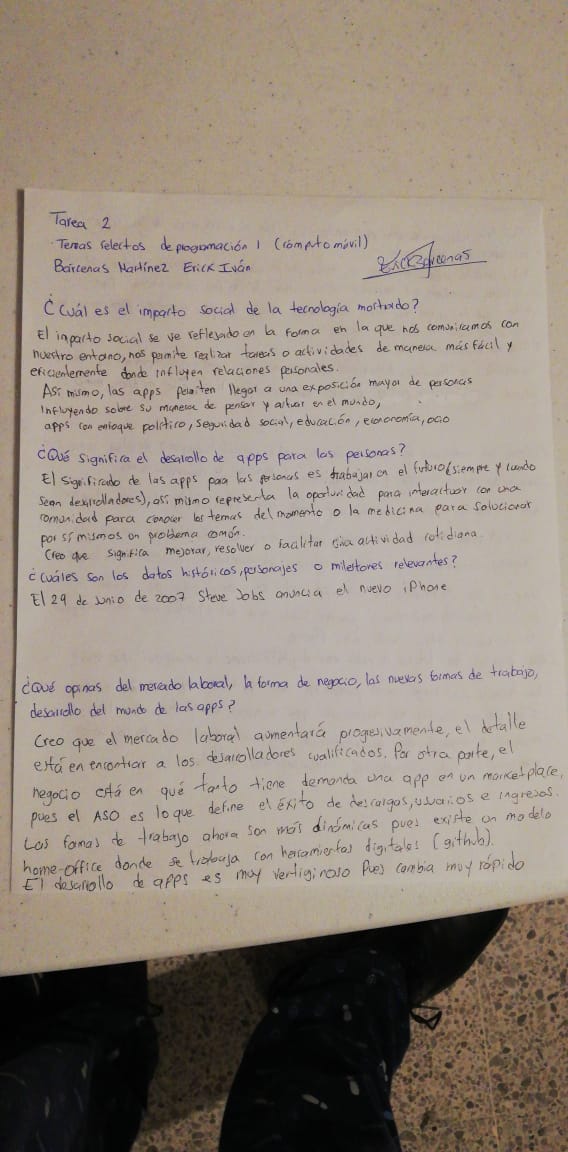 Tarea 2
Temas selectos de programación 1 (cómputo móvil)
Bárcenas Martínez Erick Iván
ErickBárcenas
¿Cuál es el impacto social de la tecnología mostrado?
El impacto social se ve reflejado en la forma en la que nos comunicamos con
nuestro entorno, nos permite realizar tareas o actividades de manera más fácil y
eficientemente donde influyen relaciones personales.
Así mismo, las apps permiten llegar a una exposición mayor de personas
Influyendo sobre su manera de pensar y actuar en el mundo,
apps con enfoque político, seguridad social, educación, economía, ocio
¿Qué significa el desarollo de apps para las personas?
El significado de las apps para las personas es trabajar en el futuro (siempre y cuando
sean desarrolladores), así mismo representa la oportunidad para interactuar con una
comunidad para conocer los temas del momento o la medicina para solucionar
por sí mismos un problema común.
Creo que significa mejorar, resolver o facilitar una actividad cotidiana.
¿Cuáles son los datos históricos, personajes o milestones relevantes?
El 29 de Junio de 2007 Steve Jobs anuncia el nuevo iPhone
¿Qué opinas del mercado laboral, la forma de negocio, las nuevas formas de trabajo,
desarrollo del mundo de las apps?
Creo que el mercado laboral aumentará progresivamente, el detalle
está en encontrar a los desarrolladores cualificados. Por otra parte, el
negocio está en qué tanto tiene demanda una app en un marketplace,
pues el ASO es lo que define el éxito de descargas, usuarios e ingresos.
Las formas de trabajo ahora son más dinámicas pues existe un modelo
home-office donde se trabaja con herramientas digitales (github).
El desarrollo de apps es muy vertiginoso pues cambia muy rápido